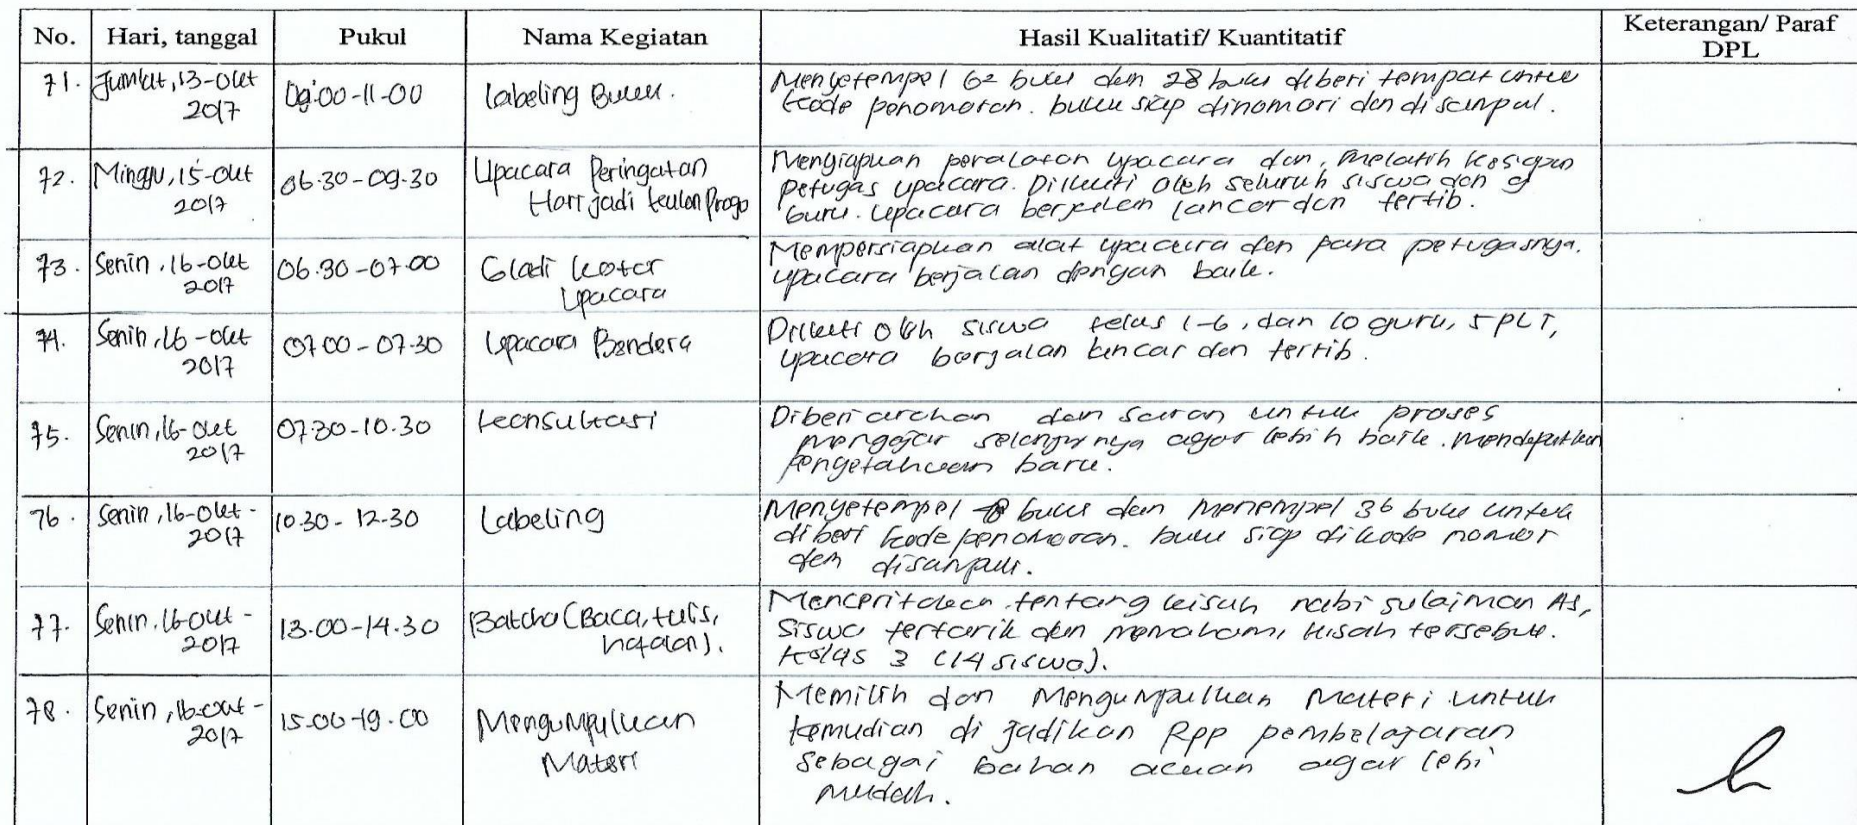 No. Hari, tanggal Pukul Nama Kegiatan Hasil Kualitatif/ Kuantitatif Keterangan/ Paraf
DPL
71. Jumlat, 13-Okt 09.00-11-00 Labeling Buku. Menyetempel 62 buku dan 28 buku diberi tempat untuk
2017 kode penomoran. buku siap dinomori dan disampul.
72. Minggu, 15-Okt 06.30-09.30 Upacara Peringatan Menyiapkan peralatan upacara dan, melatih kesigapan
2017 Hari jadi kulon Progo petugas upacara. Diikuti oleh seluruh siswa dan
Guru. Upacara berjalan lancar dan tertib.
73. Senin, 16-Okt 06.30-07.00 Gladi kotor Mempersiapkan alat upacara dan para petugasnya.
2017 Upacara upacara berjalan dengan baik.
74. Senin, 16-Okt 07.00-07.30 Upacara Bendera Diikuti oleh siswa kelas 1-6, dan 10 guru, 5 PLT,
2017 upacara berjalan lancar dan tertib.
75. Senin, 16-Okt 07.30-10.30 konsultasi Diberi arahan dan saran untuk proses
2017 mengajar selanjutnya agar lebih baik. mendapatkan
pengetahuan baru.
76. Senin, 16-Okt- 10.30-12.30 Labeling Menyetempel buku dan menempel 36 buku untuk
2017 diberi kode penomoran. buku siap dikode nomor
dan disampul.
77. Senin, 16-Okt- 13.00-14.30 Batcha (Baca, tulis, Menceritakan tentang kisah nabi sulaiman AS,
2017 hafalan). siswa tertarik dan memahami kisah tersebut.
kelas 3 (14 siswa).
78. Senin, 16-Okt- 15.00-19.00 Mengumpulkan Memilih dan Mengumpulkan Materi untuk
2017 Materi kemudian di jadikan Rpp pembelajaran
sebagai bahan acuan agar lebi
mudah.